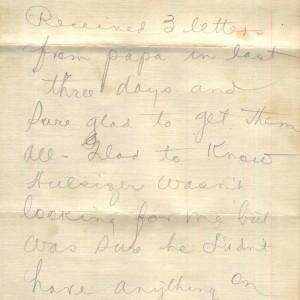 Received 3 letters
from papa in last
three days and
Sure glad to get them
all - Glad to Know
Hulsizer wasn't
looking for me but
was sure he didn't
have anything on